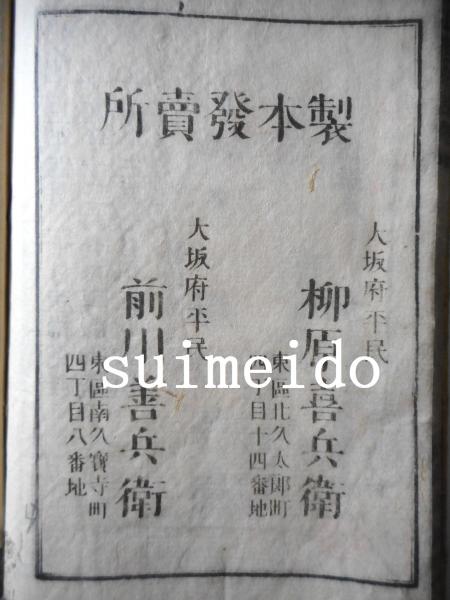 製本發賣所
大坂府平民
柳原喜兵衛
東區北久太郎町
四丁目十四番地
大坂府平民
前川善兵衛
東區南久寶寺町
四丁目八番地
suimeido